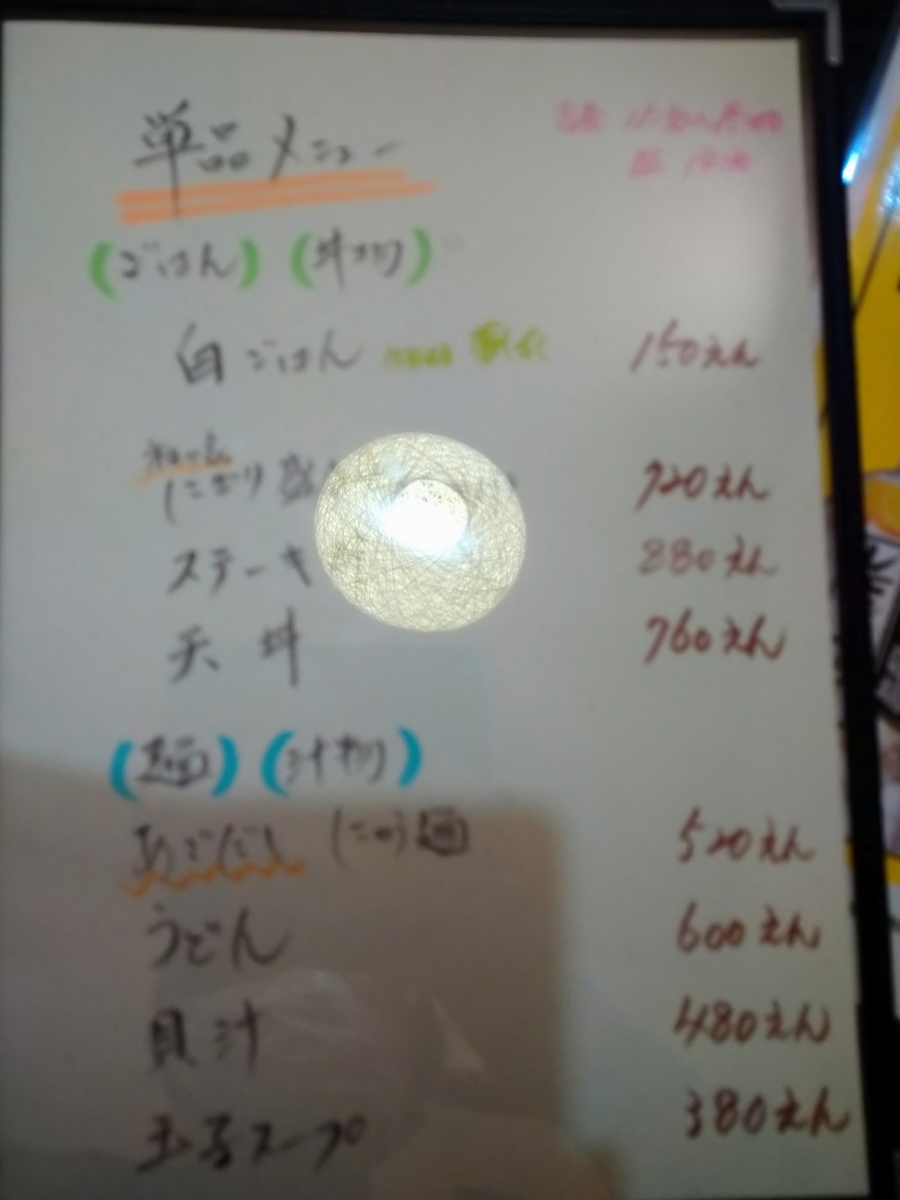 単品メニュー
(ごはん) (丼物)
白ごはん 150えん
にぎり盛 720えん
ステーキ 880えん
天丼 760えん
(麺) (汁物)
あごだし 麺 520えん
うどん 600えん
貝汁 480えん
玉子スープ 380えん